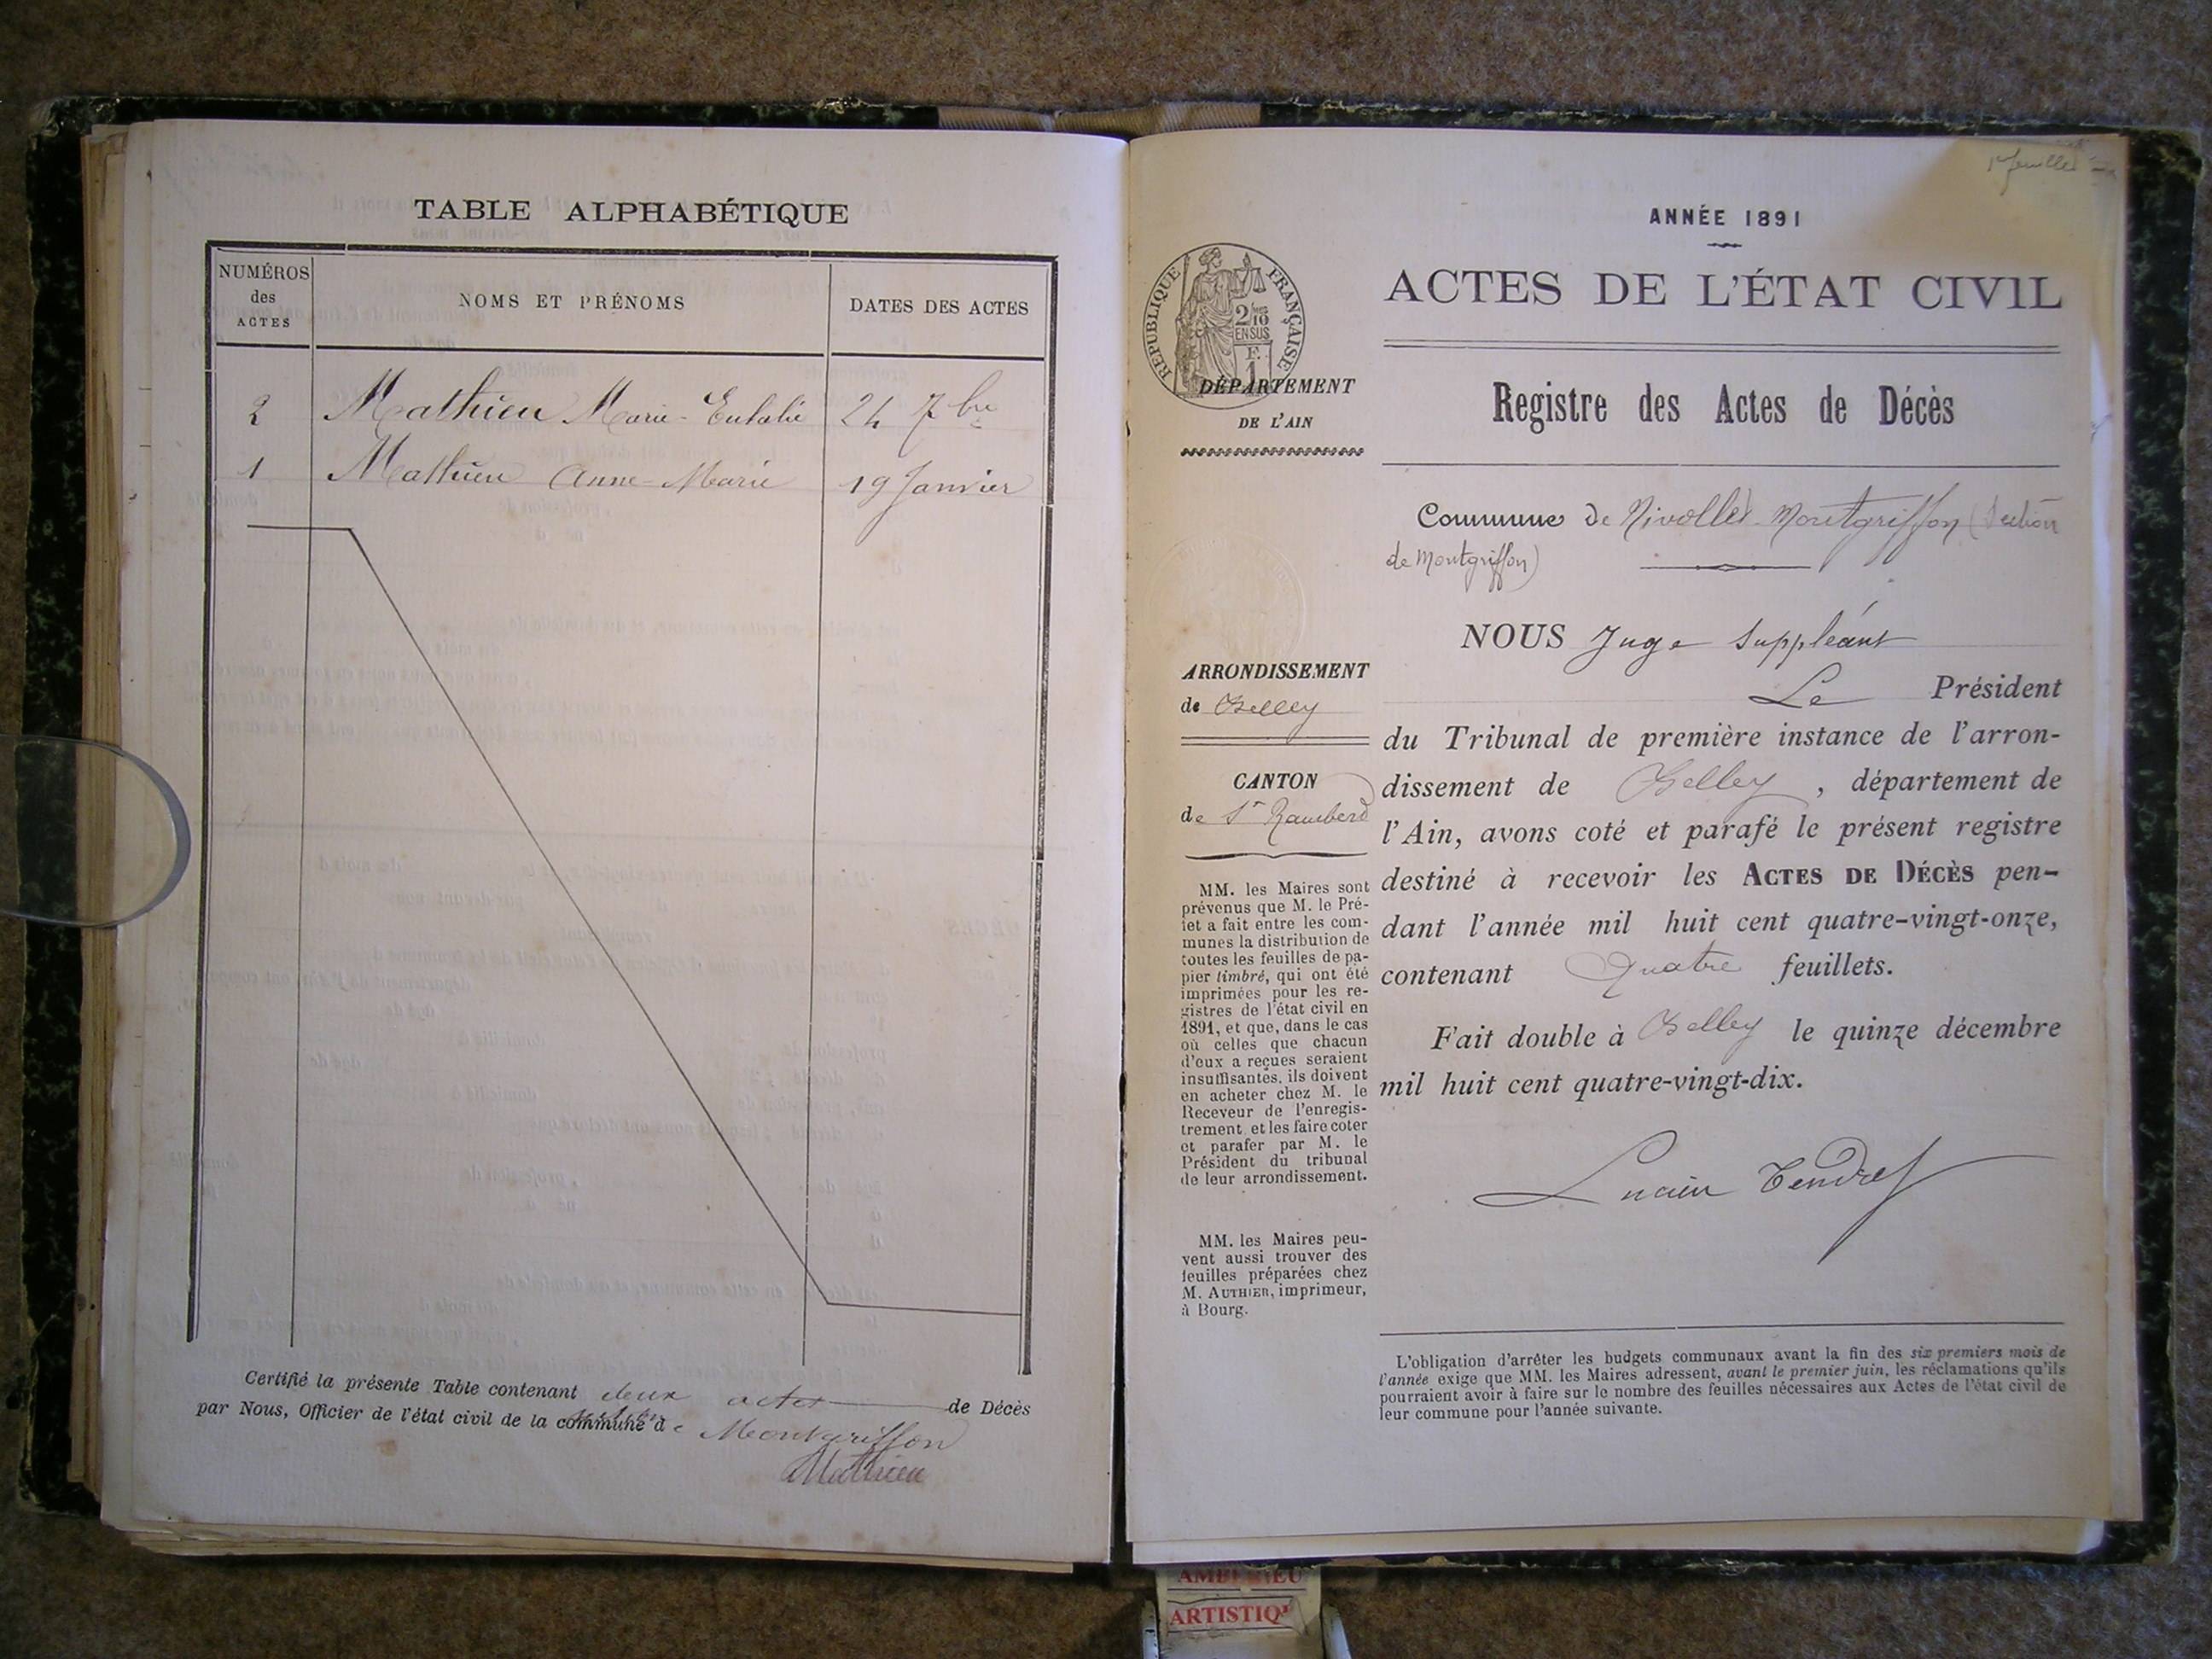 TABLE ALPHABÉTIQUE
NUMÉROS
des
ACTES
NOMS ET PRÉNOMS
DATES DES ACTES
2 Mathieu Marie-Eulalie 24 7bre
1 Mathieu Anne-Marie 19 Janvier
Certifié la présente Table contenant deux actes de Décès
par Nous, Officier de l'état civil de la commune de Montgriffon
Mathieu
1er feuillet
ANNÉE 1891
ACTES DE L'ÉTAT CIVIL
RÉPUBLIQUE FRANÇAISE
2/10
EN SUS
F.
1
DÉPARTEMENT
DE L'AIN
Registre des Actes de Décès
Commune de Nivollet-Montgriffon (section
de Montgriffon)
ARRONDISSEMENT
de Belley
CANTON
de St Rambert
MM. les Maires sont
prévenus que M. le Pré-
fet a fait entre les com-
munes la distribution de
toutes les feuilles de pa-
pier timbré, qui ont été
imprimées pour les re-
gistres de l'état civil en
1891, et que, dans le cas
où celles que chacun
d'eux a reçues seraient
insuffisantes, ils doivent
en acheter chez M. le
Receveur de l'enregis-
trement et les faire coter
et parafer par M. le
Président du tribunal
de leur arrondissement.
MM. les Maires peu-
vent aussi trouver des
feuilles préparées chez
M. AUTHIER, imprimeur,
à Bourg.
NOUS Juge Suppléant
Le Président
du Tribunal de première instance de l'arron-
dissement de Belley, département de
l'Ain, avons coté et parafé le présent registre
destiné à recevoir les ACTES DE DÉCÈS pen-
dant l'année mil huit cent quatre-vingt-onze,
contenant Quatre feuillets.
Fait double à Belley le quinze décembre
mil huit cent quatre-vingt-dix.
Lucien Tendret
L'obligation d'arrêter les budgets communaux avant la fin des six premiers mois de
l'année exige que MM. les Maires adressent, avant le premier juin, les réclamations qu'ils
pourraient avoir à faire sur le nombre des feuilles nécessaires aux Actes de l'état civil de
leur commune pour l'année suivante.
ARTISTIQ